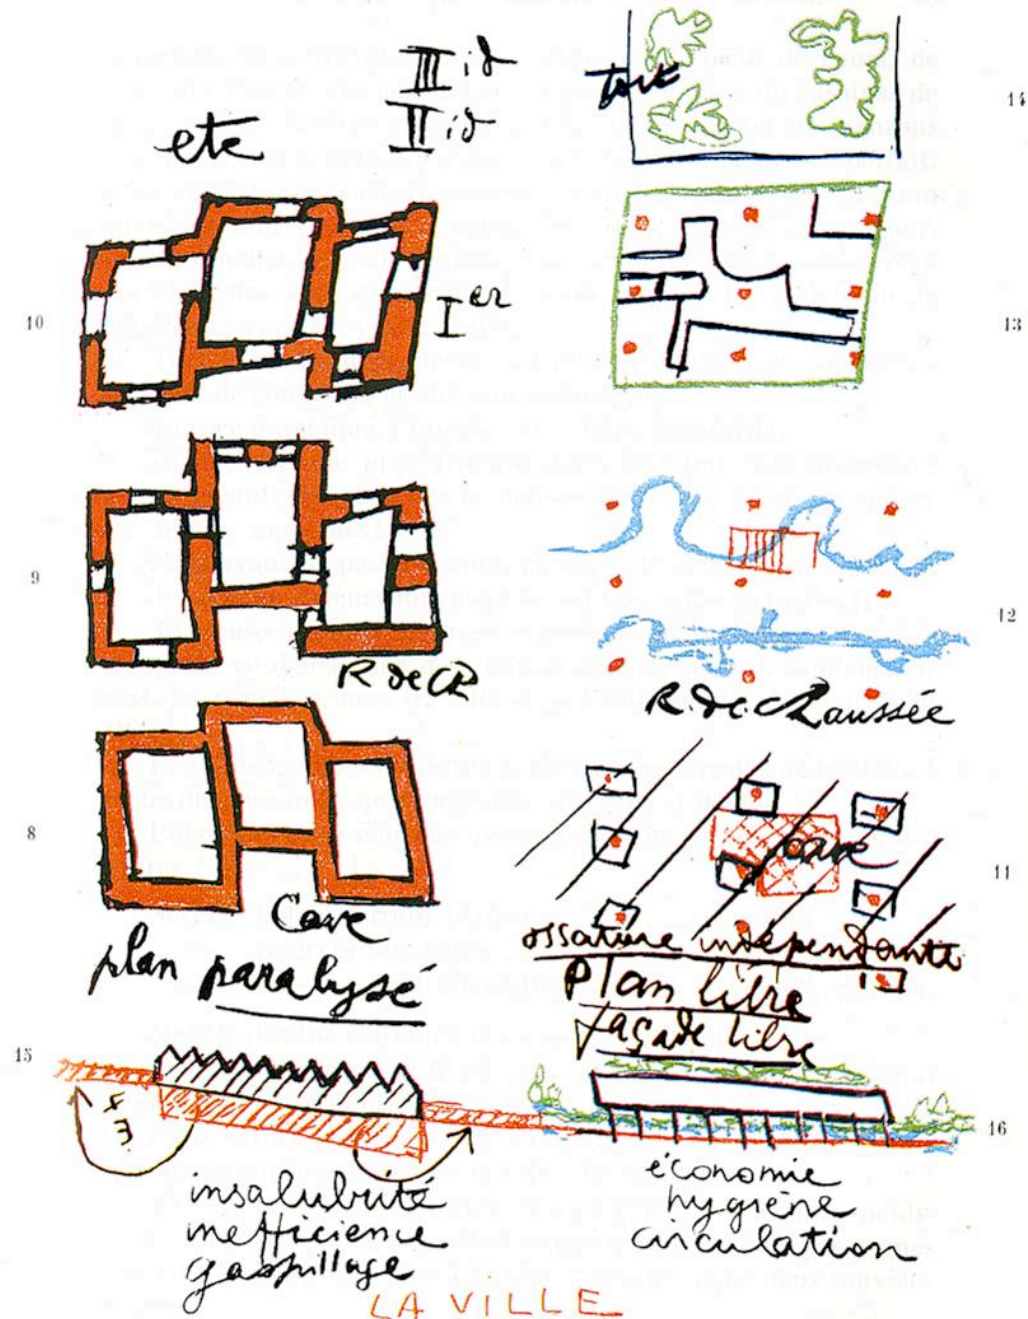 etc
III id
II id
toit
14
10
I er
13
9
R de CR
12
R. de. cRaussée
8
Cave
11
cave
plan paralysé
ossature indépendante
plan libre
façade libre
15
16
insalubrité
inefficience
gaspillage
économie
hygiène
circulation
LA VILLE